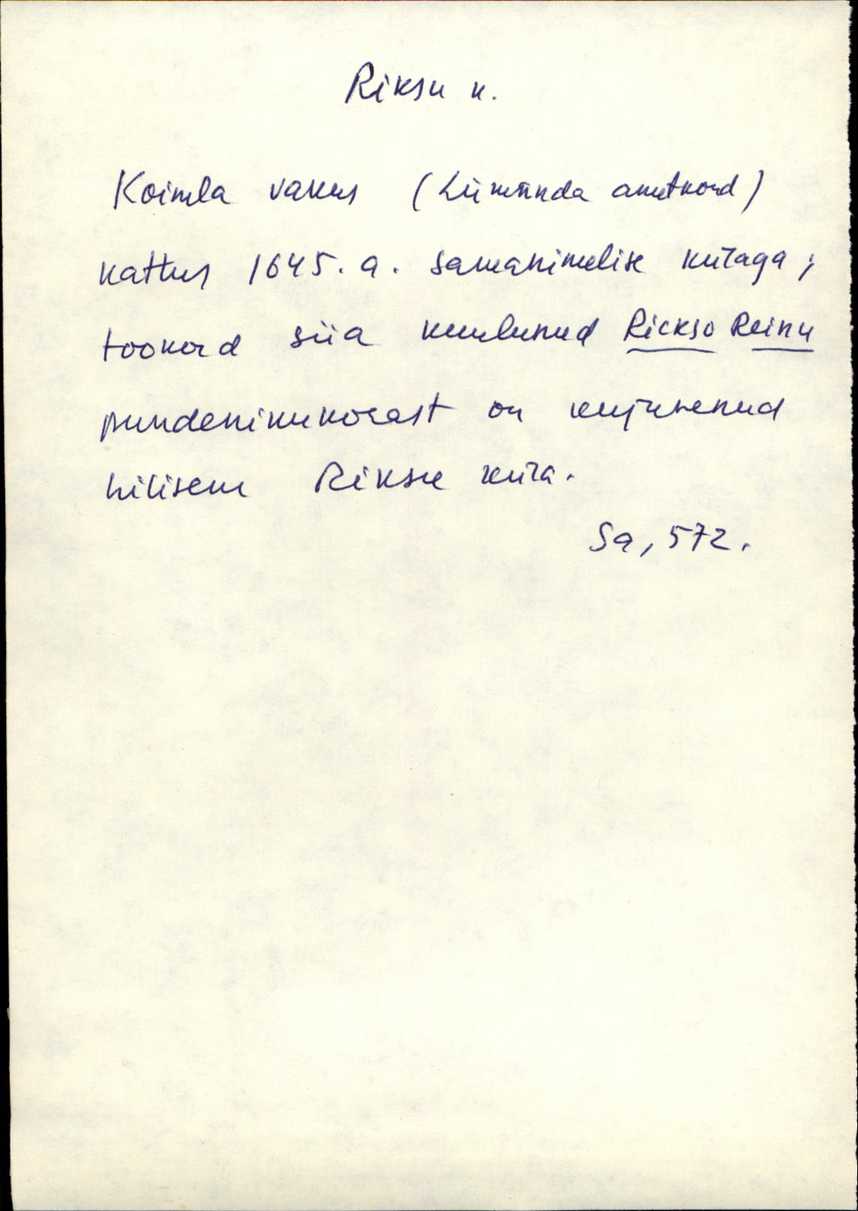 Riksu k.
Koimla vakus (Lümanda ametkond)
kattus 1645. a. samanimelise külaga;
tookord siia kuulunud Rickso Reinu
pundenikukorast on kujunenud
hilisem Riksu küla.
Sa, 572.